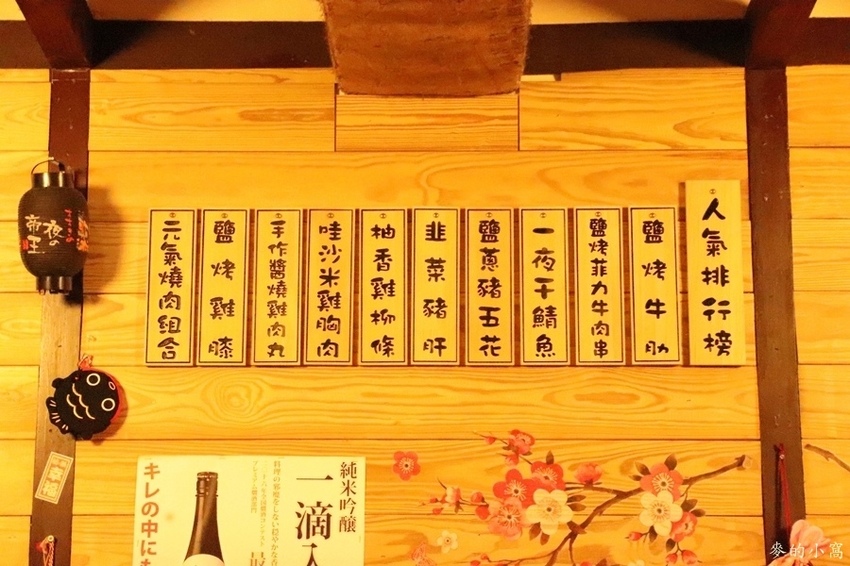 人氣排行榜
鹽烤牛肋
鹽烤菲力牛肉串
一夜干鯖魚
鹽蔥豬五花
韭菜豬肝
柚香雞柳條
哇沙米雞胸肉
手作醬燒雞肉丸
鹽烤雞膝
元氣燒肉組合
夜の帝王
純米吟醸
一滴入
キレの中にも
麥的小窩